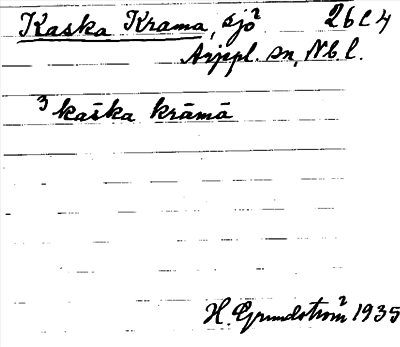 Kaska Krama, sjö² 26 C 4
Arjepl. sn, Nb. l.
³kaška krāmā
H. Grundström² 1935